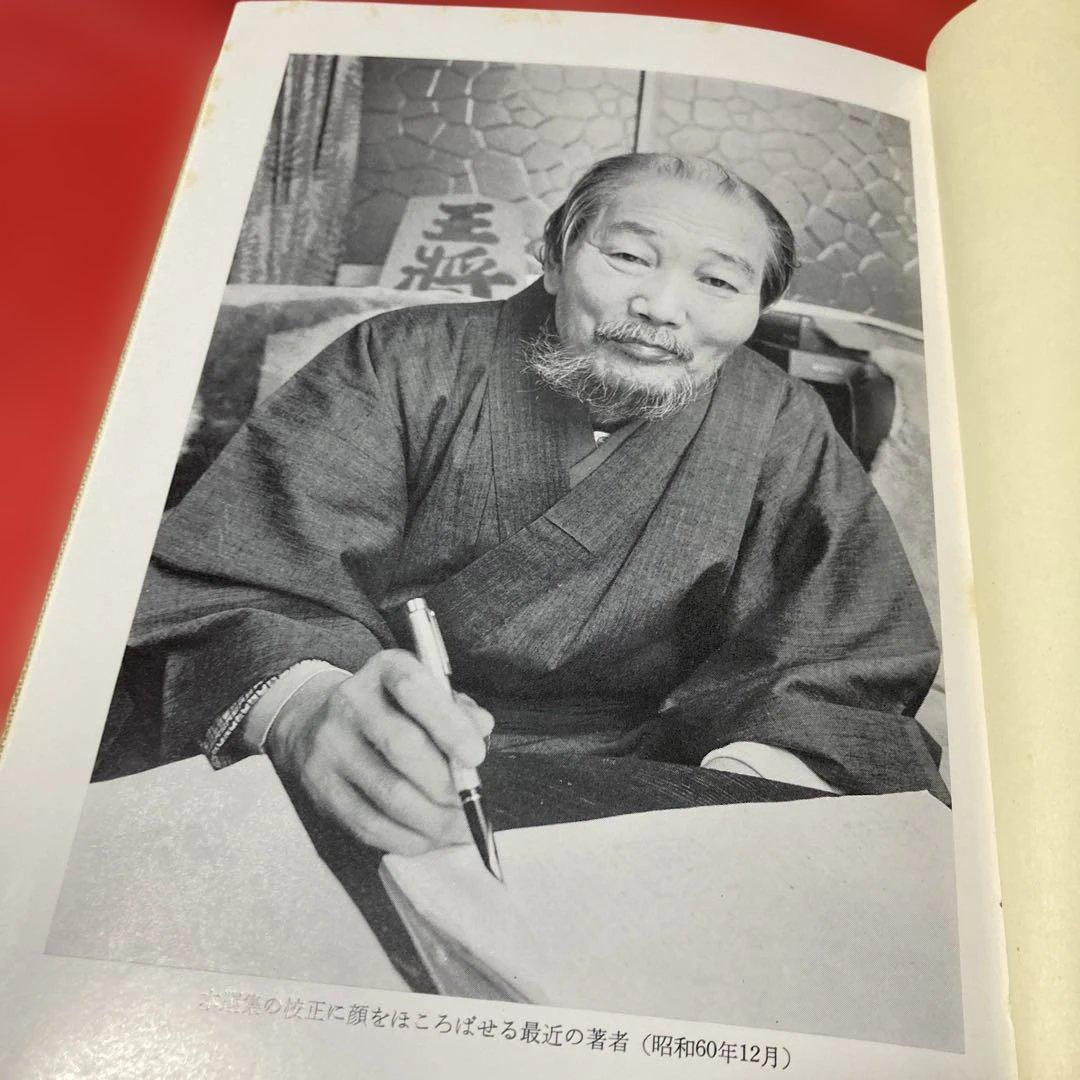 王将
本選集の校正に顔をほころばせる最近の著者（昭和60年12月）